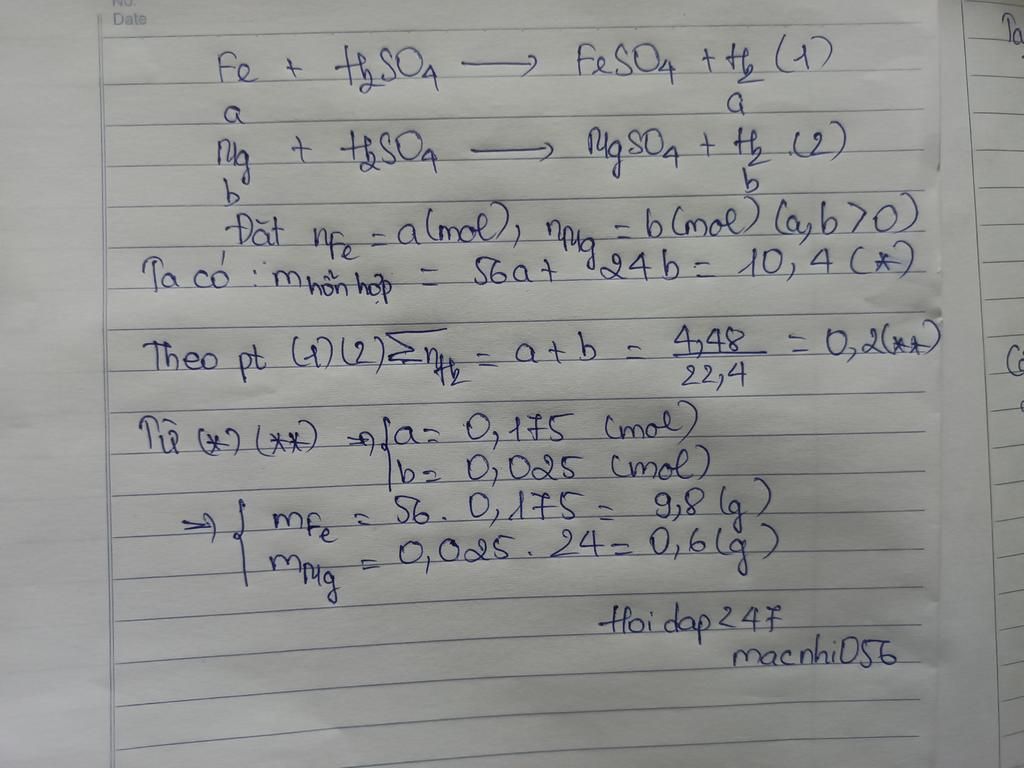 No.
Date
Fe + H₂SO₄ ⟶ FeSO₄ + H₂ (1)
a a
Mg + H₂SO₄ ⟶ MgSO₄ + H₂ (2)
b b
Đặt nFe = a(mol), nMg = b(mol) (a,b > 0)
Ta có : mhỗn hợp = 56a + 24b = 10,4 (*)
Theo pt (1)(2) Σ nH₂ = a + b = 4,48/22,4 = 0,2(**)
Từ (*) (**) ⇒ { a = 0,175 (mol)
b = 0,025 (mol)
⇒ { mFe = 56. 0,175 = 9,8 (g)
mMg = 0,025 . 24 = 0,6 (g)
Hoidap247
macnhi056
Ta